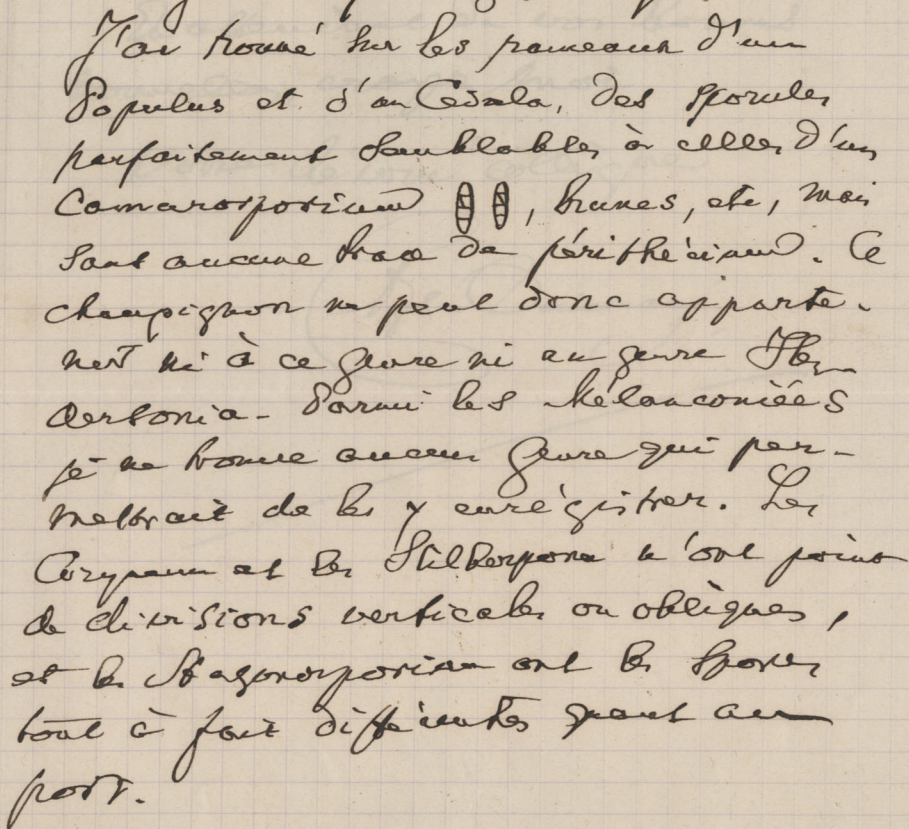 J'ai trouvé sur les rameaux d'un
Populus et d'un Cedrela, des sporules
parfaitement semblables à celles d'un
Camarosporium , brunes, etc, mais
sans aucune trace de périthécium. Ce
champignon ne peut donc apparte-
nir ni à ce genre ni au genre Hen
dersonia. Parmi les Mélanconiées
je ne trouve aucun genre qui per-
mettrait de les y enrégistrer. Les
Coryneum et les Stilbospora n'ont point
de divisions verticales ou obliques,
et les Stegonosporium ont les spores
tout à fait différentes quant au
port.